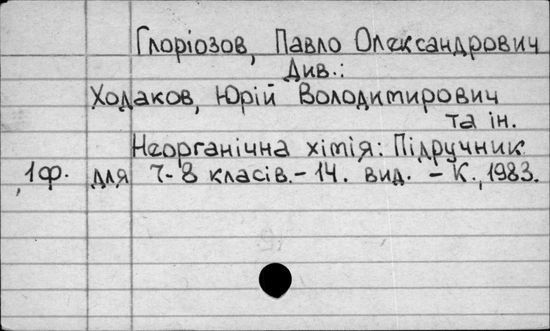 Глоріозов, Павло Олександрович
Див.:
Ходаков, Юрій Володимирович
та ін.
Неорганічна хімія: Підручник
1ф. для 7-8 класів.- 14. вид. - К., 1983.